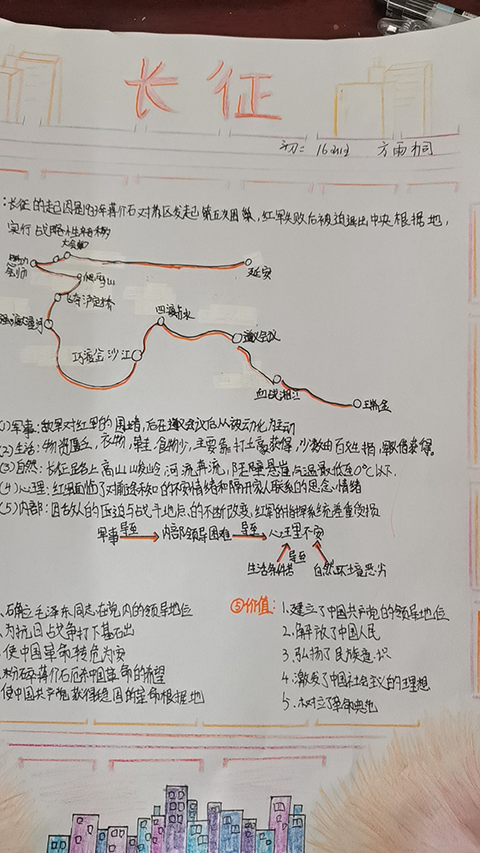 长征
初二 16班 方雨桐
:长征的起因是因为蒋介石对苏区发起第五次围剿,红军失败后被迫退出中央根据地,
实行战略
大会师
会师
延安
爬雪山
飞夺泸定桥
强渡大渡河
巧渡金沙江
四渡赤水
遵义会议
血战湘江
瑞金
(1)军事:敌军对红军的围堵,后在遵义会议后从被动化为主动
(2)生活:物资匮乏,衣物,鞋,食物少,主要靠打土豪获得,少数由百姓捐,
(3)自然:长征路上高山峻岭,河流奔流,陡壁悬崖气温最低至0℃以下.
(4)心理:红军面临了对前途未知的不安情绪和隔开家人联系的思念情绪
(5)内部:因敌人的压迫与战斗地后的不断改变,红军的指挥系统严重受损
军事 导至 内部领导困难 导至 心理不安
导至
生活条件 自然环境恶劣
1.确立毛泽东同志在党内的领导地位
2.为抗日战争打下基石出
3.使中国革命转危为安
蒋介石 中国革命的希望
使中国共产党获得稳固的革命根据地
⑤价值: 1.建立了中国共产党的领导地位
2.解放了中国人民
3.弘扬了民族意识
4.激发了中国社会主义的理想
5.树立了革命典范